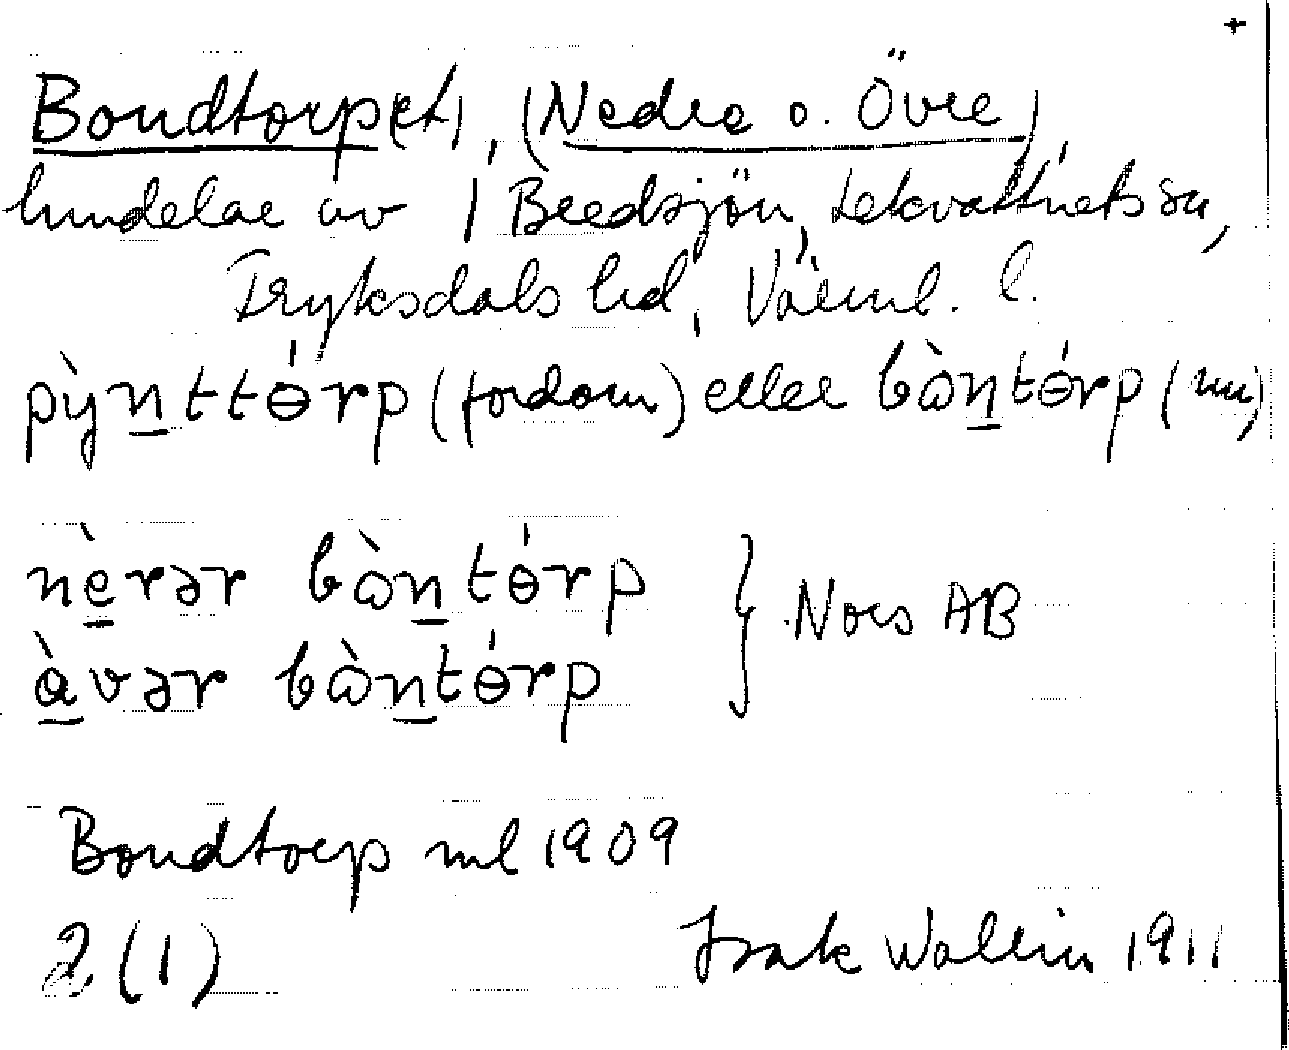 +
Bondtorp(et), (Nedre o. Övre)
lundelar av 1 Bredsjön, Lekvattnets sn,
Fryksdals hd, Värml. l.
pỳn̲ttɵ́rp (fordom) eller bɷ̀n̲tɵ́rp (nu)
nè̲rər bɷ̀n̲tɵ́rp } Nors AB
à̲vər bɷ̀n̲tɵ́rp
Bondtorp ml 1909
2 (1) Isak Wallin 1911